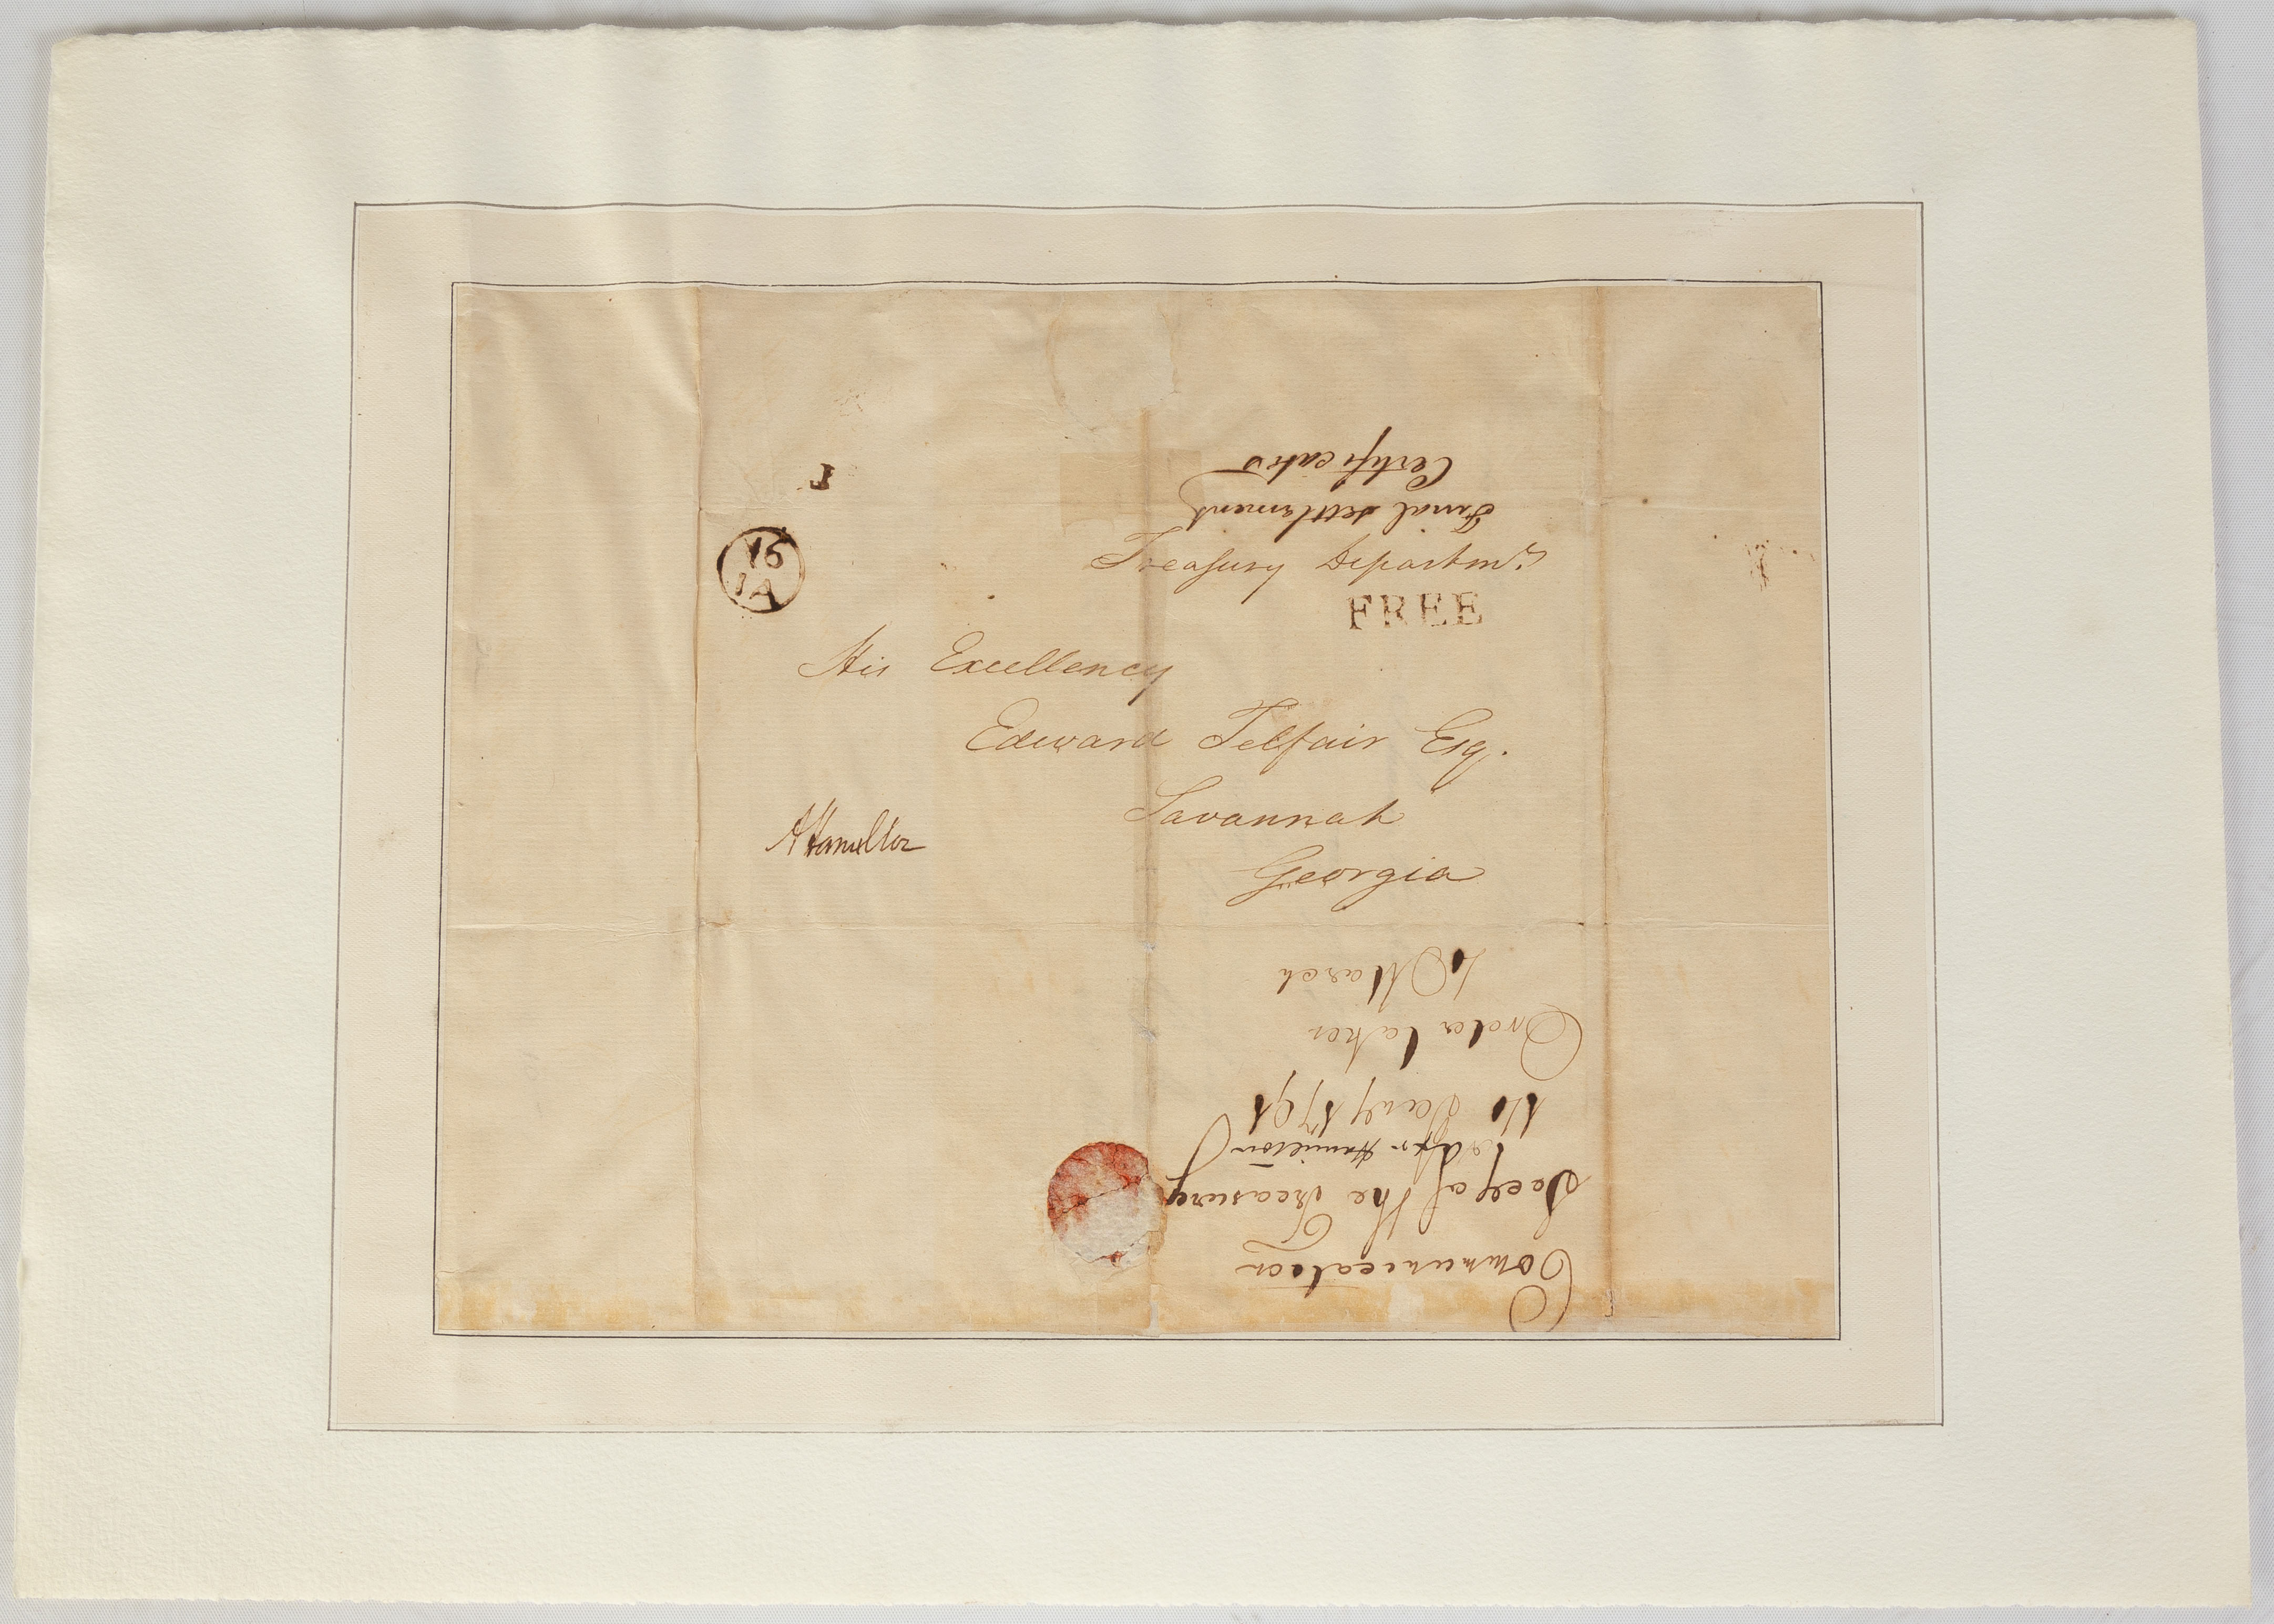 16
IA
Treasury Departmt.
FREE
His Excellency
Edward Telfair Esq.
Savannah
Georgia
AHamilton
Final settlement
Certificates
Communication
Secy of the Treasury
Alexr Hamilton
10 Jany 1791
Order taken
10 March